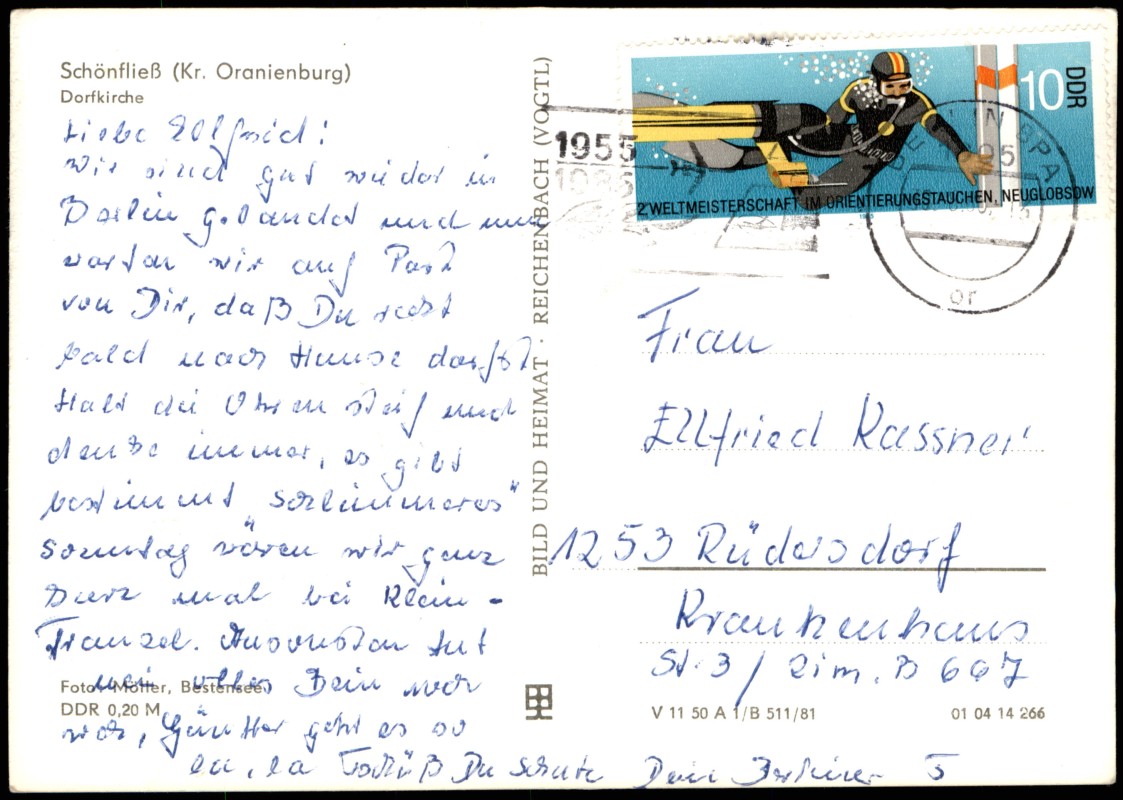 Schönfließ (Kr. Oranienburg)
Dorfkirche
Liebe Ellfried!
Wir sind gut wieder in
Berlin gelandet und nun
warten wir auf Post
von Dir, daß Du recht
bald nach Hause darfst
Halt die Ohren steif und
denke immer, es gibt
bestimmt "Schlimmeres"
Sonntag wären wir ganz
kurz mal bei Klein-
Franzel. Ansonsten tut
mein olles Bein noch
weh, Günther geht es so
la, la Tschüß Du Schatz Dein Berliner 5
Foto: Möller, Bestensee
DDR 0,20 M
BILD UND HEIMAT · REICHENBACH (VOGTL)
1955
1985
10
DDR
2. WELTMEISTERSCHAFT IM ORIENTIERUNGSTAUCHEN, NEUGLOBSOW
BERLIN BPA
or
Frau
Ellfried Kassner
1253 Rüdersdorf
Krankenhaus
St. 3 / Zim. B 667
V 11 50 A 1/B 511/81
01 04 14 266